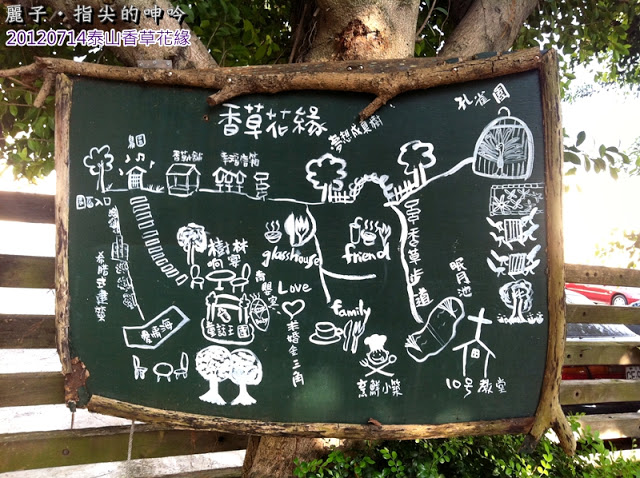 麗子‧指尖的呻吟
20120714泰山香草花緣
香草花緣
夢想成真樹
孔雀園
園區入口
香草步道
眠月池
樹林
glasshouse
friend
Love
family
童話王國
未婚金三角
愛情海
希臘式建築
烹鮮小築
10号教堂